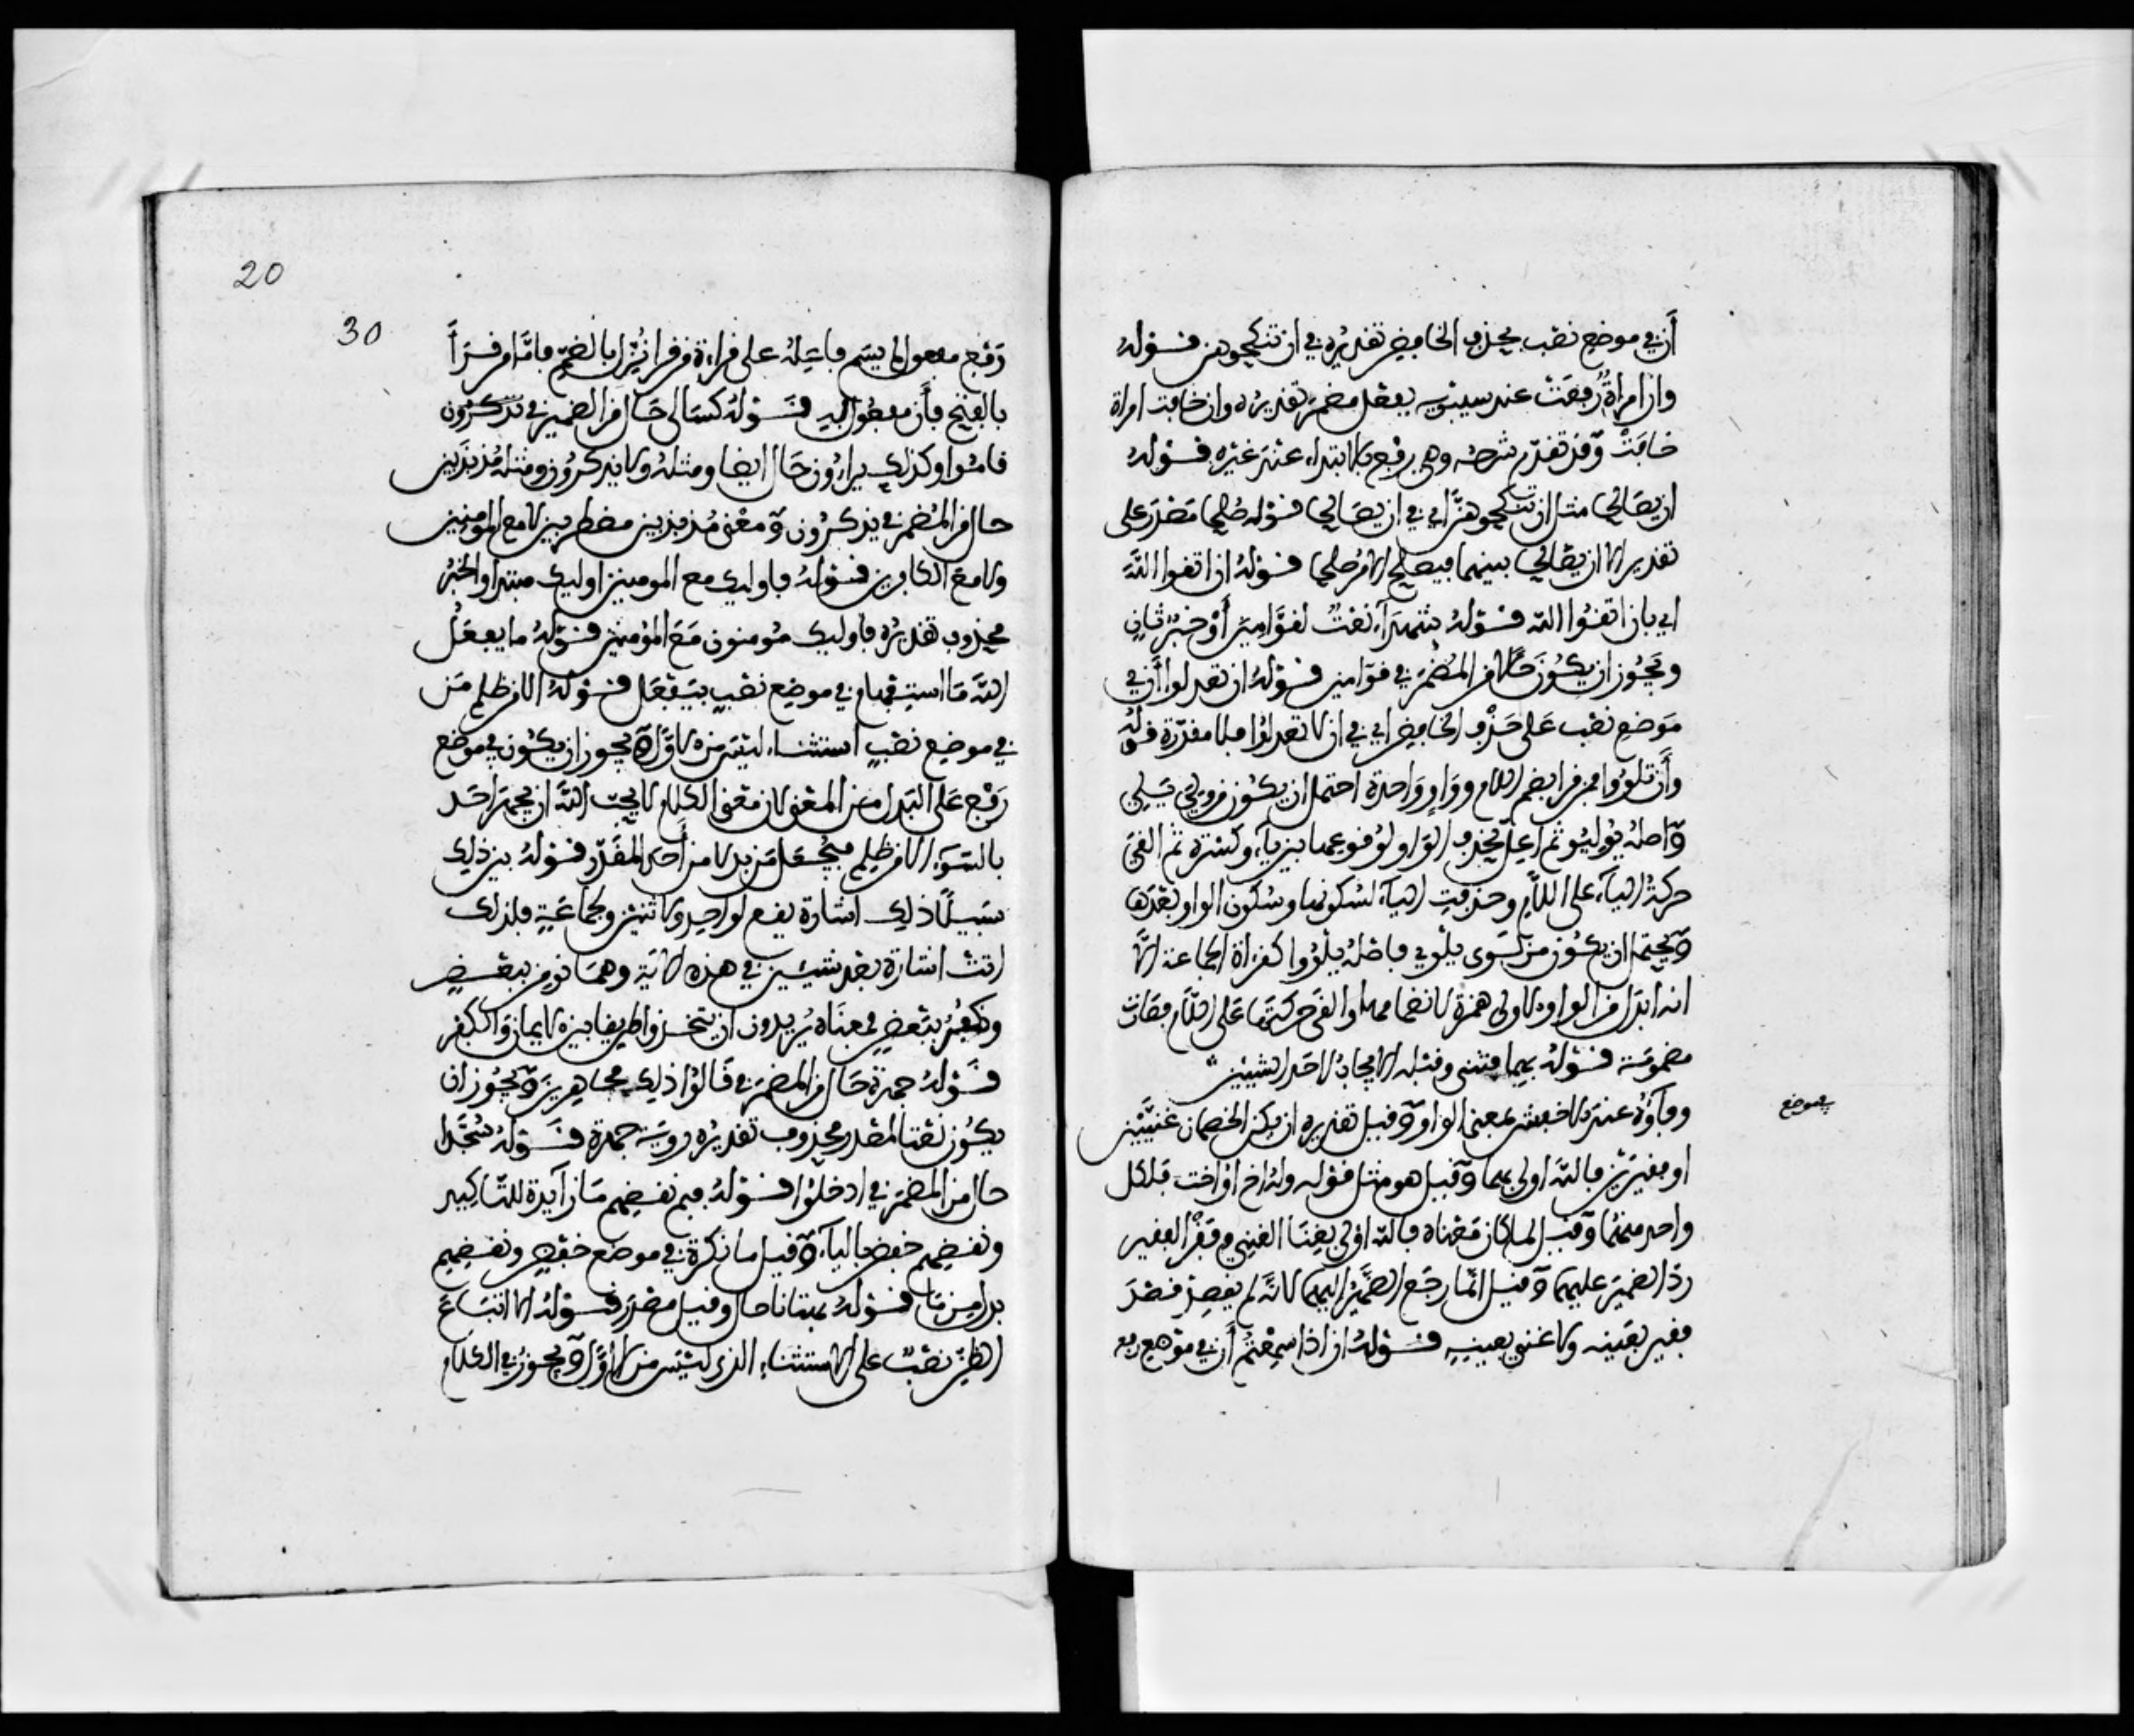 أن في موضع نصب بحذف الخافض تقديره في ان تنكحوهن قوله
وان امراة رفعت عند سيبويه بفعل مضمر تقديره وان خافت امراة
خافت وقد تقدم شرحه وهي رفع بالابتداء عند غيره قوله
ان يصالحا مثل ان تنكحوهن اي في ان يصالحا قوله صلحا مصدر على
تقدير الا ان يصالحا بينهما فيصلح الامر صلحا قوله ان اتقوا الله
اي بان اتقوا الله قوله شهداء نعت لقوامين أو خبر ثان
ويجوز ان يكون حالا من المضمر في قوامين قوله ان تعدلوا أن في
موضع نصب على حذف الخافض اي في ان لا تعدلوا فلا مقدرة قوله
وأن تلووا من قرا بضم اللام وواو واحدة احتمل ان يكون من ولي يلي
واصله يوليو ثم اعل بحذف الواو لوقوعها بين ياء وكسرة ثم القى
حركة الياء على اللام وحذفت الياء لسكونها وسكون الواو بعدها
ويحتمل ان يكون من لوى يلوي فاصله يلووا كقراة الجماعة الا
انه ابدل من الواو الاولى همزة لانضمامها والقى حركتها على اللام فصارت
مضمومة قوله بهما فثنى وقبله الايجاب لاحد الشيئين
فاو عند الاخفش بمعنى الواو وقيل تقديره ان يكن الخصمان غنيين
او فقيرين فالله اولى بهما وقيل هو مثل قوله وله اخ او اخت فلكل
واحد منهما وقيل لما كان معناه فالله اولى بغنا الغني وفقر الفقير
رد الضمير عليهما وقيل انما رجع الضمير اليهما لانه لم يقصد قصد
فقير بعينه ولا غني بعينه قوله ان اذا سمعتم أن في موضع رفع
في موضع
20
30
رفع مفعول لم يسم فاعله على قراءة من قرا نزل بالضم فاما من قرأ
بالفتح فأن مفعول به قوله كسالى حال من الضمير في يذكرون
قاموا وكذلك يراءون حال ايضا ومثله ولا يذكرون ومثله مذبذبين
حال من المضمر في يذكرون ومعنى مذبذبين مضطربين لا مع المومنين
ولا مع الكافرين قوله فاوليك مع المومنين اوليك مبتدا والخبر
محذوف تقديره فاوليك مومنون مع المومنين قوله ما يفعل
الله ما استفهام في موضع نصب بيفعل قوله الا من ظلم من
في موضع نصب استثناء ليس من الاول ويجوز ان يكون في موضع
رفع على البدل من المعنى لان معنى الكلام لا يحب الله ان يجهر احد
بالسوء الا من ظلم فيجعل من بدلا من أحد المقدر قوله بين ذلك
سبيلا ذلك اشارة يقع لواحد ولاثنين ولجماعة فلذلك
اتت اشارة بعد شيئين في هذه الاية وهما نومن ببعض
ونكفر ببعض فمعناه يريدون ان يتخذوا طريقا بين الايمان والكفر
قوله جهرة حال من المضمر في قالوا اي ذلك مجاهرين ويجوز ان
يكون نعتا لمصدر محذوف تقديره روية جهرة قوله سجدا
حال من المضمر في ادخلوا قوله فبم نقضهم ما زايدة للتاكيد
ونقضهم خفض بالباء وقيل ما نكرة في موضع خفض ونقضهم
بدل من ما قوله بهتانا حال وقيل مصدر قوله الا اتباع
الظن نصب على الاستثناء الذي ليس من الاول ويجوز في الكلام